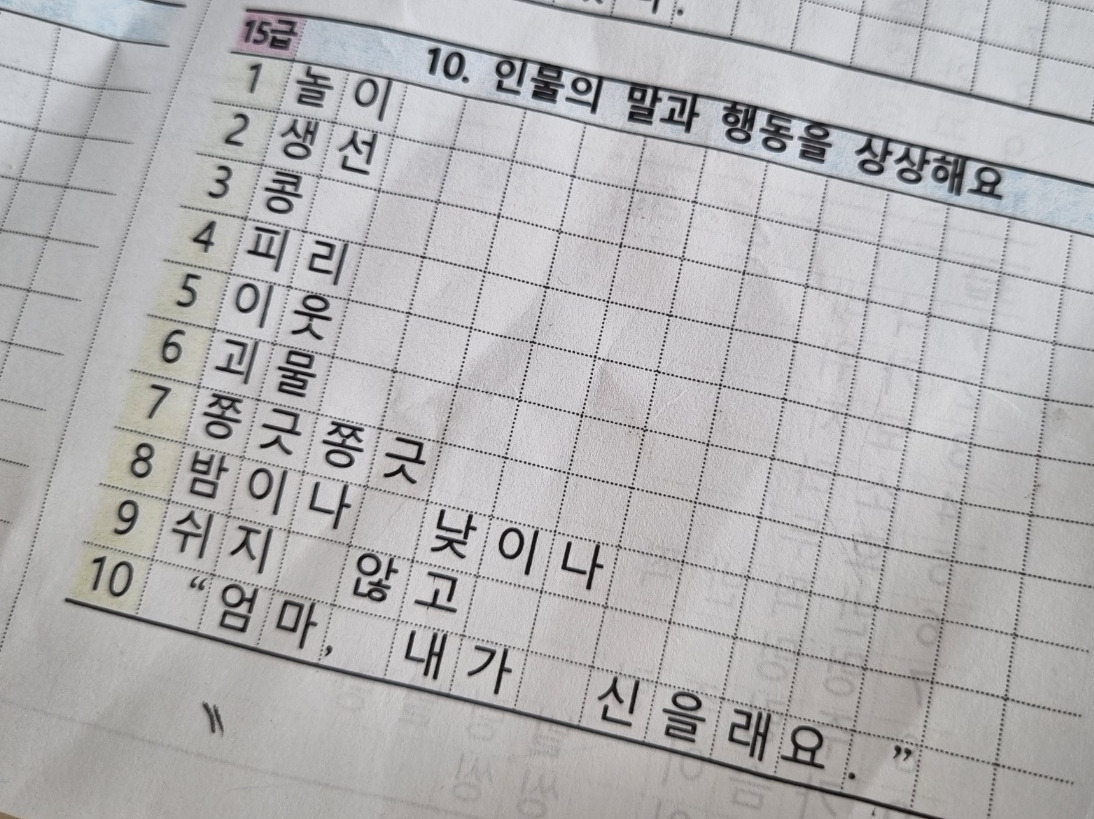 15급
10. 인물의 말과 행동을 상상해요
1 놀이
2 생선
3 콩
4 피리
5 이웃
6 괴물
7 쫑긋쫑긋
8 밤이나 낮이나
9 쉬지 않고
10 “엄마, 내가 신을래요.”